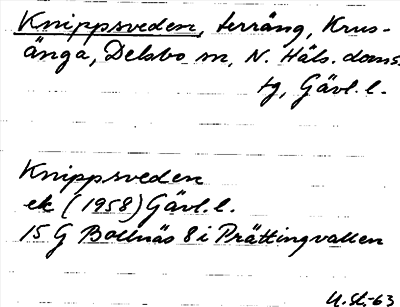 Knippsveden, terräng, Krus-
änga, Delsbo sn, N. Häls. doms.
tg, Gävl. l.
Knippsveden
ek (1958) Gävl. l.
15 G Bollnäs 8 i Prättingvallen
U. St. -63